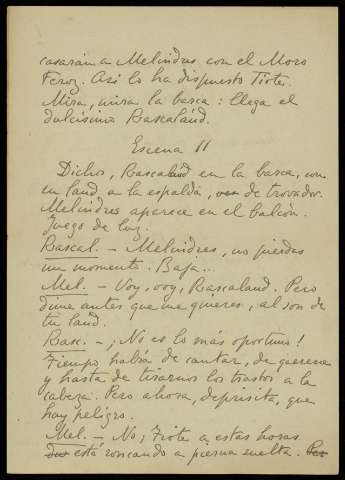 casarán a Melindres con el Moro
Feroz. Así lo ha dispuesto Tiote.
Mira, mira la barca: llega el
dulcísimo Rascalaúd.
Escena II
Dichos, Rascalaúd en la barca, con
un laúd a la espalda, de trovador.
Melindres aparece en el balcón.
Juego de luz.
Rascal. - Melindres, no pierdas
un momento. Baja...
Mel. - Voy, voy, Rascalaud. Pero
dime antes que me quieres, al son de
tu laúd.
Rasc. - ¡No es lo más oportuno!
Tiempo habrá de cantar, de quererse
y hasta de tirarnos los trastos a la
cabeza. Pero ahora, deprisita, que
hay peligro.
Mel. - No; Tiote a estas horas
está roncando a pierna suelta.